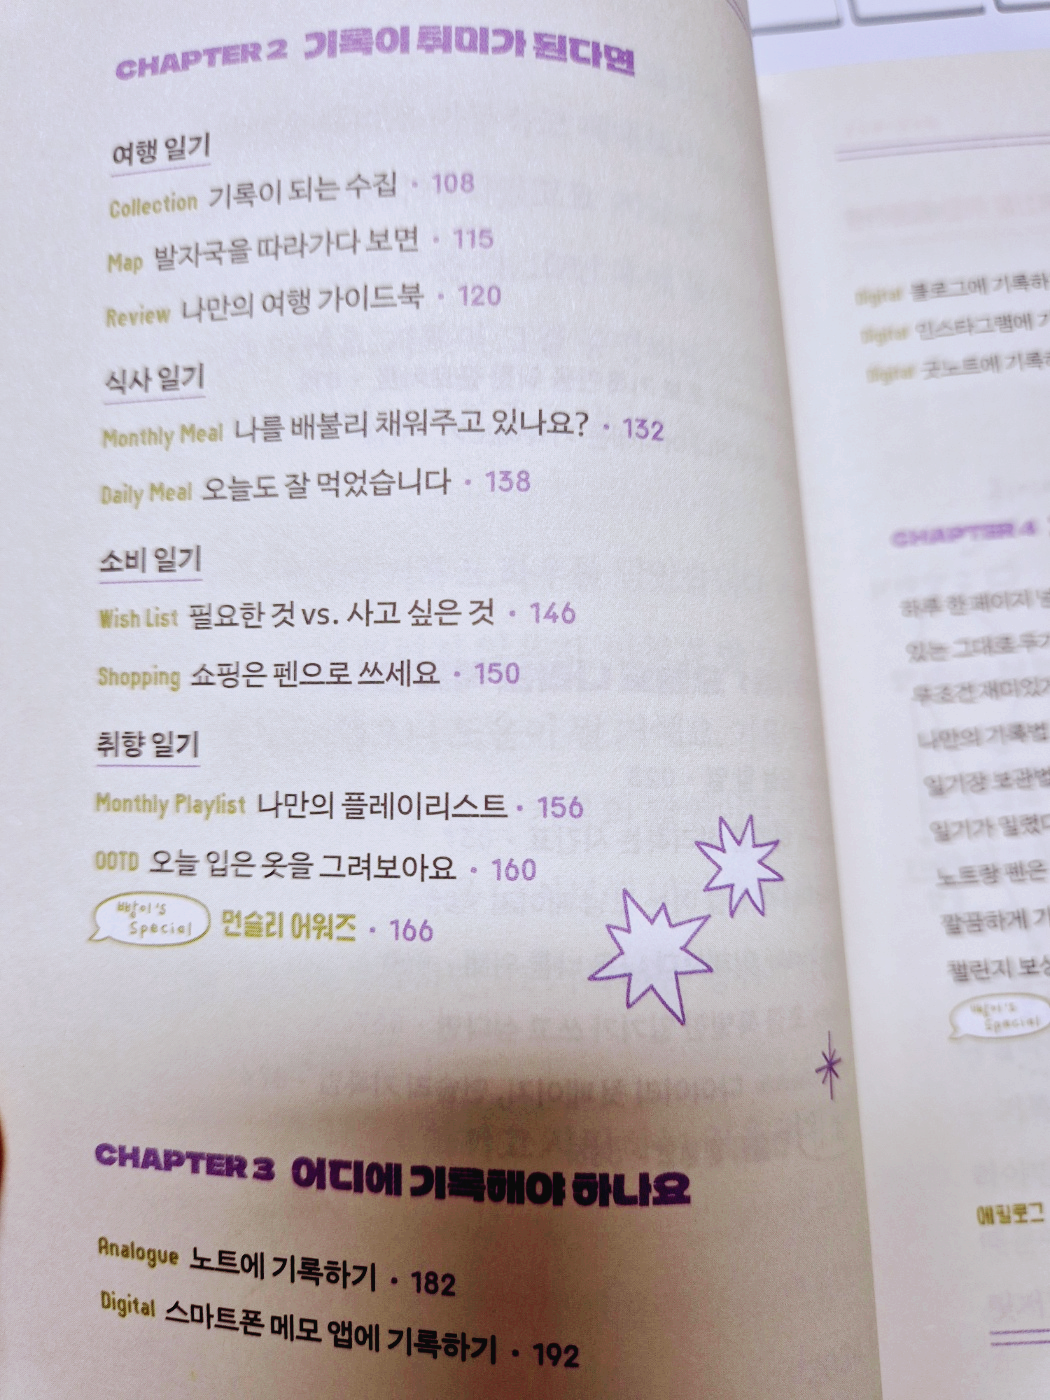 CHAPTER 2 기록이 취미가 된다면
여행 일기
Collection 기록이 되는 수집 · 108
Map 발자국을 따라가다 보면 · 115
Review 나만의 여행 가이드북 · 120
식사 일기
Monthly Meal 나를 배불리 채워주고 있나요? · 132
Daily Meal 오늘도 잘 먹었습니다 · 138
소비 일기
Wish List 필요한 것 vs. 사고 싶은 것 · 146
Shopping 쇼핑은 펜으로 쓰세요 · 150
취향 일기
Monthly Playlist 나만의 플레이리스트 · 156
OOTD 오늘 입은 옷을 그려보아요 · 160
빵이's Special 먼슬리 어워즈 · 166
CHAPTER 3 어디에 기록해야 하나요
Analogue 노트에 기록하기 · 182
Digital 스마트폰 메모 앱에 기록하기 · 192
Digital 블로그에 기록하
Digital 인스타그램에
Digital 굿노트에 기록하
CHAPTER 4
하루 한 페이지
있는 그대로
무조건 재미있
나만의 기록법
일기장 보관법
일기가 밀렸
노트랑 펜은
깔끔하게
챌린지 보상
빵이's Special
에필로그